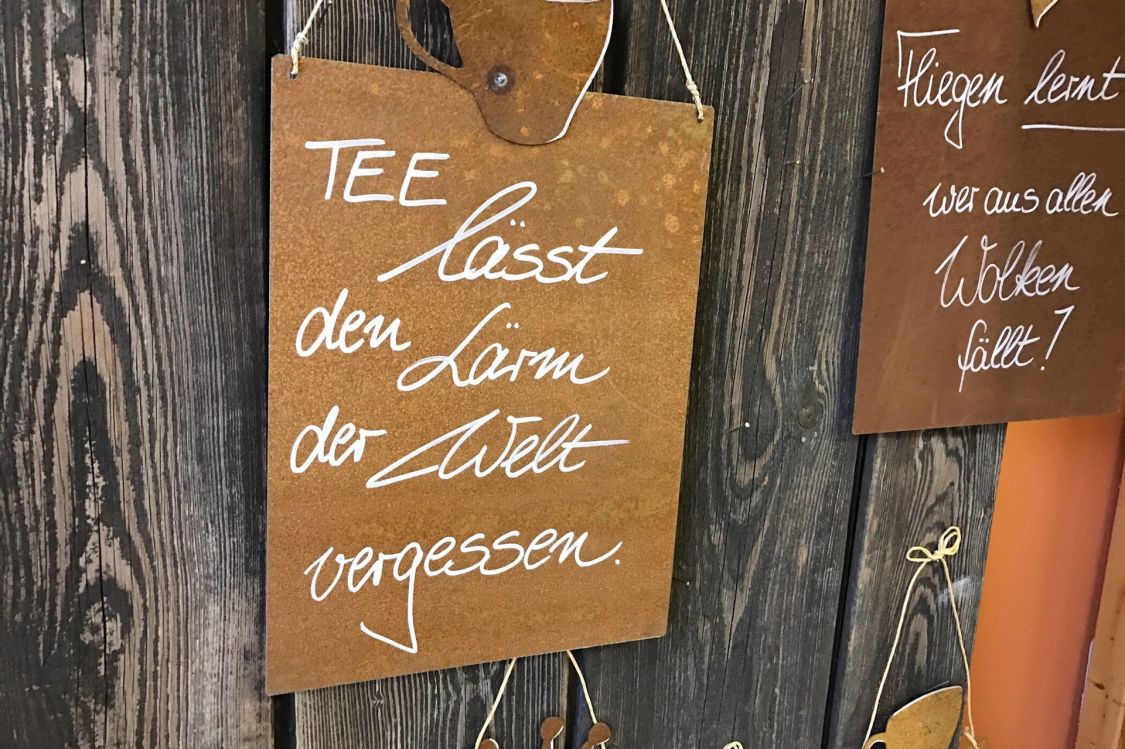 TEE
lässt
den Lärm
der Welt
vergessen.
Fliegen lernt
wer aus allen
Wolken
fällt!